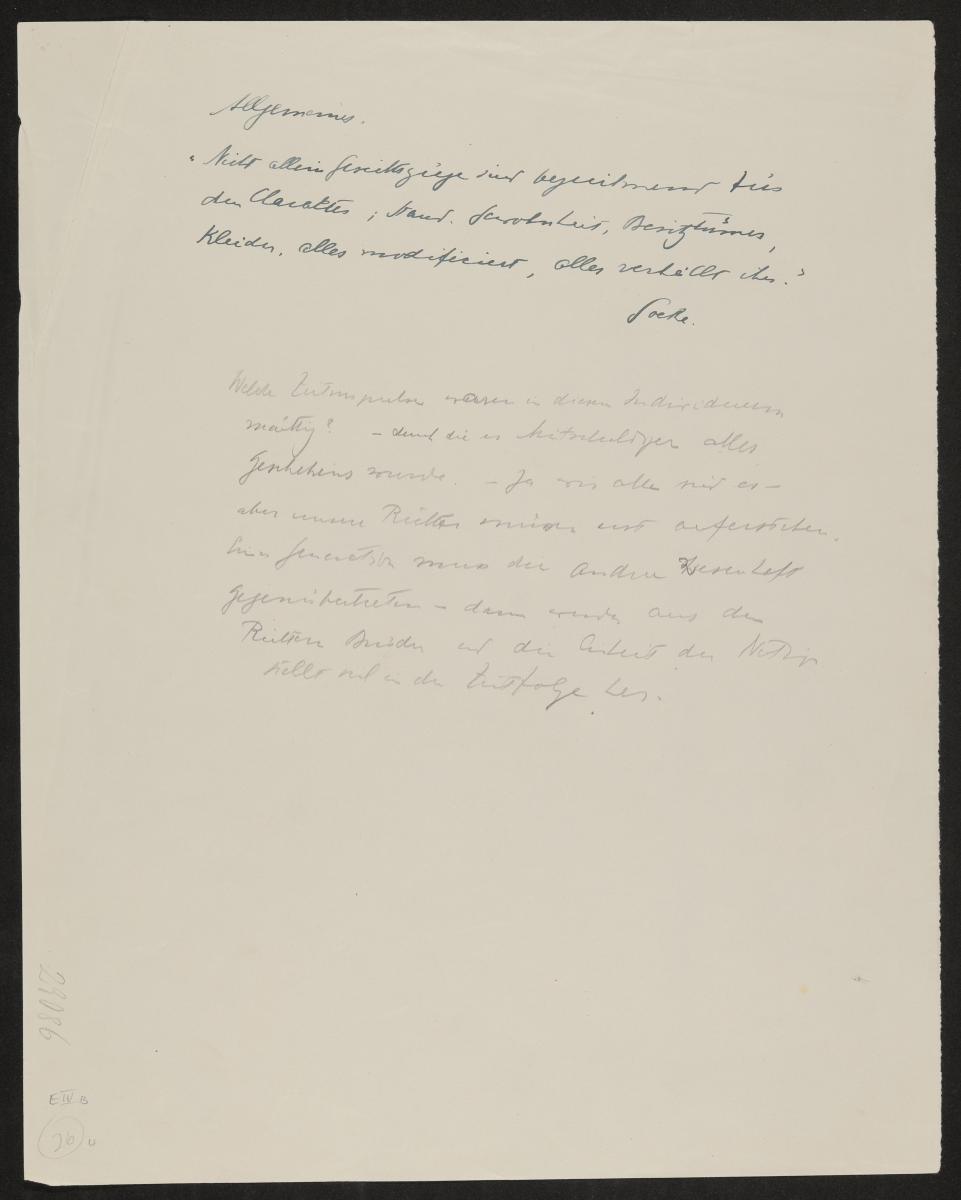 Allgemeines.
"Nicht allein Gesichtszüge sind bezeichnend für
den Charakter; Stand. Gewohnheit, Besitztümer,
Kleider, alles modificiert, alles verhüllt ihn."
Goethe.
Welche Zeitimpulse waren in diesem Individuum
mächtig? – durch die es Mitschuldiger alles
Geschehens wurde. – Ja wir alle sind es –
aber unsere Richter müssen erst auferstehen.
Eine Generation muss der andern
gegenübertreten – dann werden aus den
Richtern Brüder und die Einheit der
stellt sich in der Zeitfolge her.
29086
E IV B
26 u